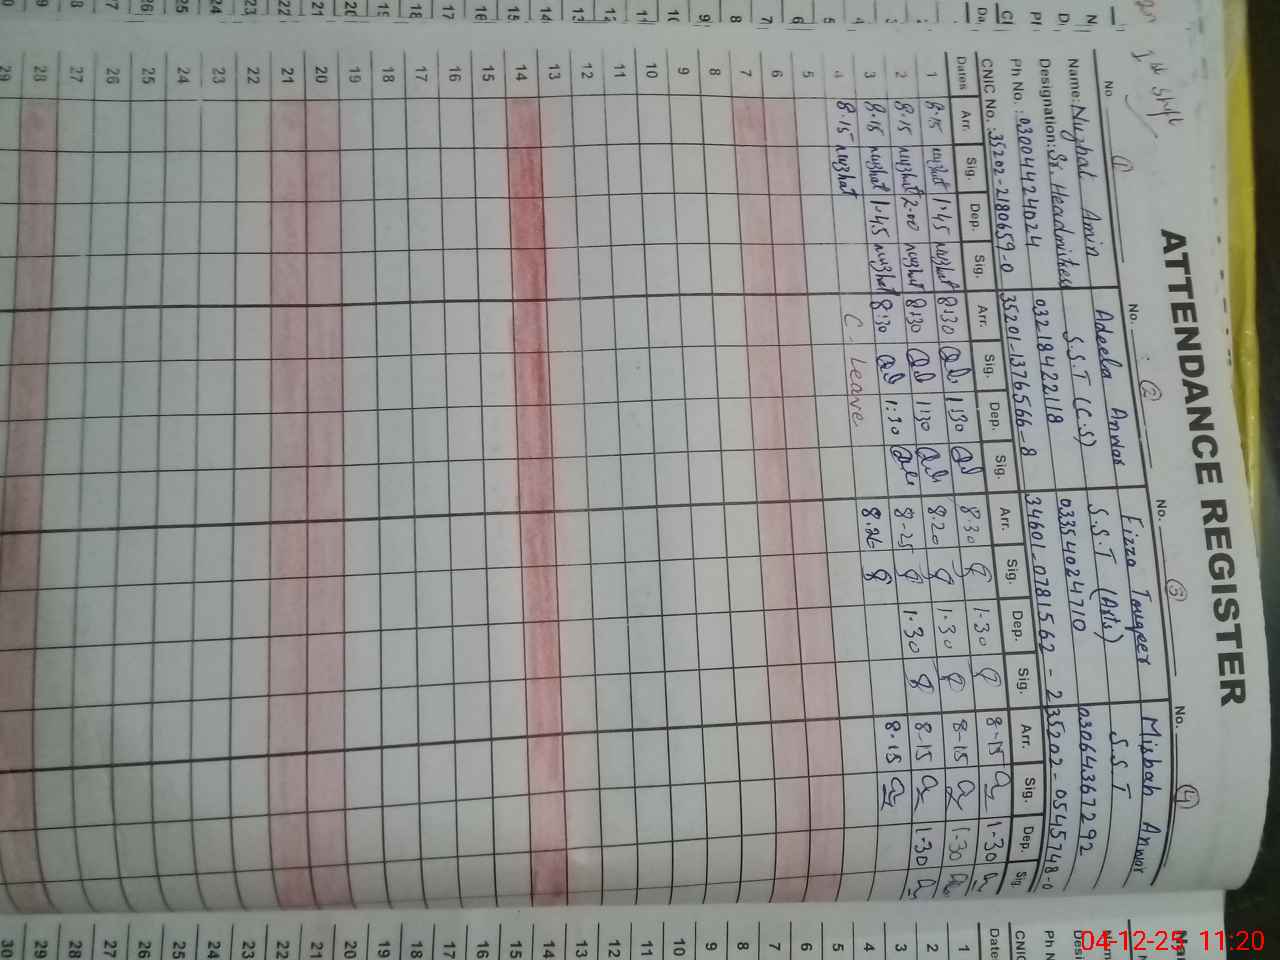 1st Shift
ATTENDANCE REGISTER
No. ① No. ② No. ③ No. ④
Name: Nuzhat Amin Adeela Anwar Fizza Touqeer Misbah Anwar
Designation: Sr. Headmistress S.S.T (C.S) S.S.T (Arts) S.S.T
Ph No.: 03004424024 03218422118 03354024710 03064367292
CNIC No.: 35202-2180659-0 35201-1376566-8 34601-0781562-2 35202-0545748-0
Dates Arr. Sig. Dep. Sig. Arr. Sig. Dep. Sig. Arr. Sig. Dep. Sig. Arr. Sig. Dep. Sig.
1 8.15 nuzhat 1.45 nuzhat 8:30 1:30 8.30 1.30 8-15 1-30
2 8.15 nuzhat 2.00 nuzhat 8:30 1:30 8.20 1.30 8-15 1-30
3 8.15 nuzhat 1.45 nuzhat 8:30 1:30 8-25 1.30 8-15 1-30
4 8.15 nuzhat C. Leave 8.26 8.15
5
6
7
8
9
10
11
12
13
14
15
16
17
18
19
20
21
22
23
24
25
26
27
28
29
04-12-25 11:20